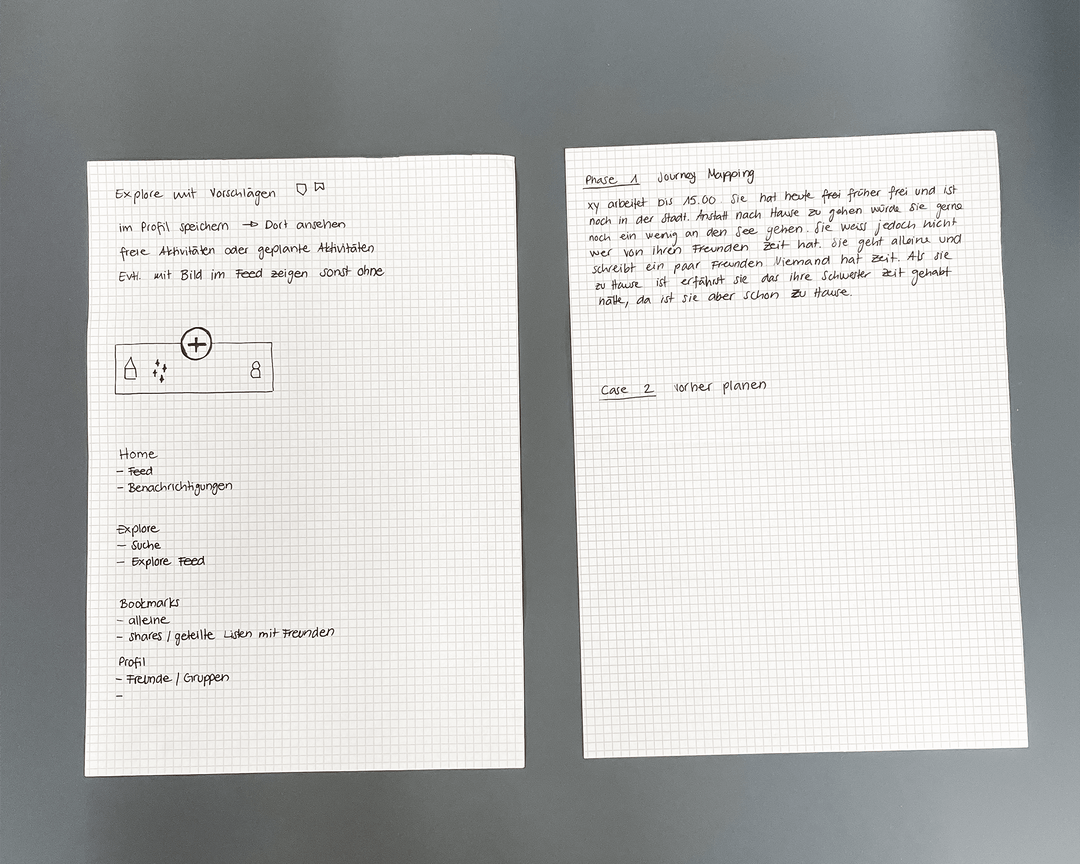 Explore mit Vorschlägen
im Profil speichern → Dort ansehen
freie Aktivitäten oder geplante Aktivitäten
Evtl. mit Bild im Feed zeigen sonst ohne
Home
- Feed
- Benachrichtigungen
Explore
- Suche
- Explore Feed
Bookmarks
- alleine
- shares / geteilte Listen mit Freunden
Profil
- Freunde / Gruppen
-
Phase 1 Journey Mapping
xy arbeitet bis 15.00 Sie hat heute frei früher frei und ist
noch in der Stadt. Anstatt nach Hause zu gehen würde sie gerne
noch ein wenig an den See gehen. Sie weiss jedoch nicht
wer von ihren Freunden Zeit hat. Sie geht alleine und
schreibt ein paar Freunden. Niemand hat Zeit. Als sie
zu Hause ist erfährt sie das ihre Schwester Zeit gehabt
hätte, da ist sie aber schon zu Hause.
Case 2 vorher planen